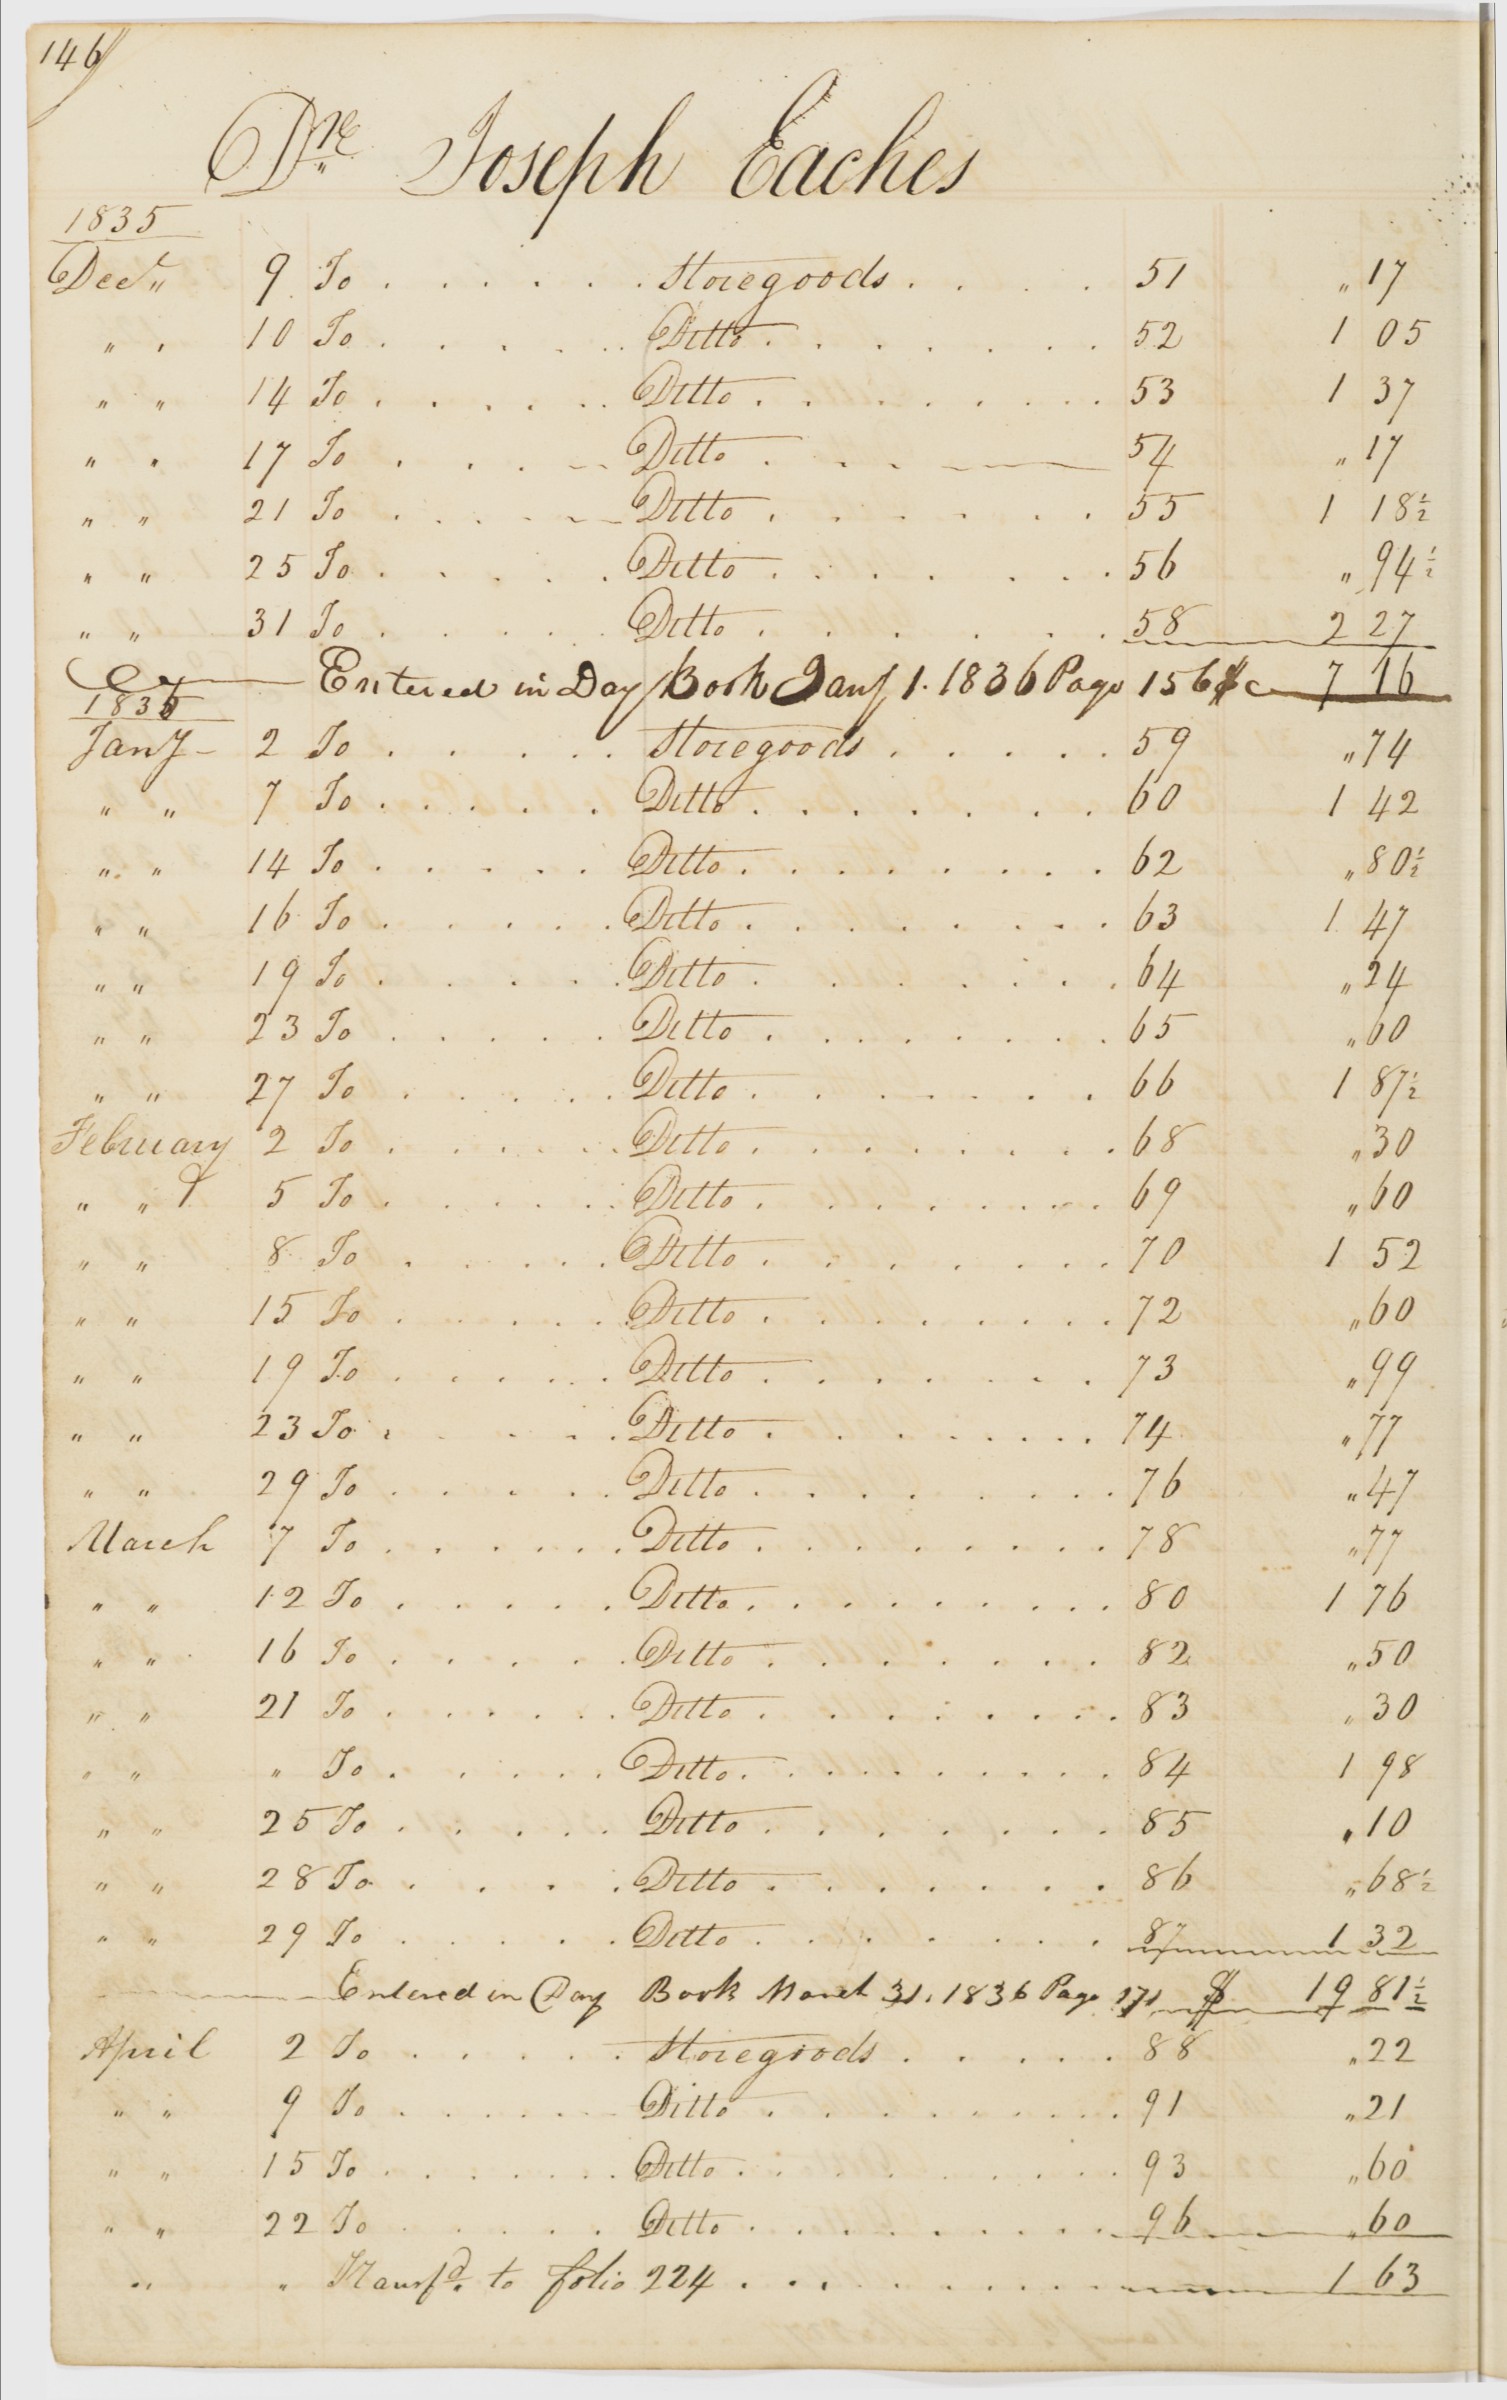 146
Dr. Joseph Eaches
1835
Decr. 9 To . . . . . . Storegoods . . . . 51 " 17
" " 10 To . . . . . . Ditto . . . . . . . 52 1 05
" " 14 To . . . . . . Ditto . . . . . . . 53 1 37
" " 17 To . . . . . . Ditto . . . . 54 " 17
" " 21 To . . . . . . Ditto . . . . . . . 55 1 18½
" " 25 To . . . . . . Ditto . . . . . . . 56 " 94½
" " 31 To . . . . . . Ditto . . . . . . . 58 2 27
Entered in Day Book Jany 1. 1836 Page 156 $ c 7 16
1836
Jany 2 To . . . . . Storegoods . . . . . 59 " 74
" " 7 To . . . . . Ditto . . . . . . . 60 1 42
" " 14 To . . . . . Ditto . . . . . . . 62 " 80½
" " 16 To . . . . . Ditto . . . . . . . 63 1 47
" " 19 To . . . . . Ditto . . . . . . . 64 " 24
" " 23 To . . . . . Ditto . . . . . . . 65 " 60
" " 27 To . . . . . Ditto . . . . . . . 66 1 87½
February 2 To . . . . . Ditto . . . . . . . 68 " 30
" " 5 To . . . . . Ditto . . . . . . . 69 " 60
" " 8 To . . . . . Ditto . . . . . . . 70 1 52
" " 15 To . . . . . Ditto . . . . . . . 72 " 60
" " 19 To . . . . . Ditto . . . . . . . 73 " 99
" " 23 To . . . . . Ditto . . . . . . . 74 " 77
" " 29 To . . . . . Ditto . . . . . . . 76 " 47
March 7 To . . . . . . Ditto . . . . . . . 78 " 77
" " 12 To . . . . . Ditto . . . . . . . 80 1 76
" " 16 To . . . . . Ditto . . . . . . . 82 " 50
" " 21 To . . . . . . Ditto . . . . . . . 83 " 30
" " " To . . . . . Ditto . . . . . . . 84 1 98
" " 25 To . . . . . Ditto . . . . . . . 85 " 10
" " 28 To . . . . . Ditto . . . . . . . 86 " 68½
" " 29 To . . . . . Ditto . . . . . . . 87 1 32
Entered in Day Book March 31. 1836 Page 171 $ 19 81½
April 2 To . . . . . Storegoods . . . . . 88 " 22
" " 9 To . . . . . . Ditto . . . . . . . 91 " 21
" " 15 To . . . . . . Ditto . . . . . . . 93 " 60
" " 22 To . . . . . Ditto . . . . . . . 96 " 60
" " Transfd. to folio 224 . . . . . . . 1 63